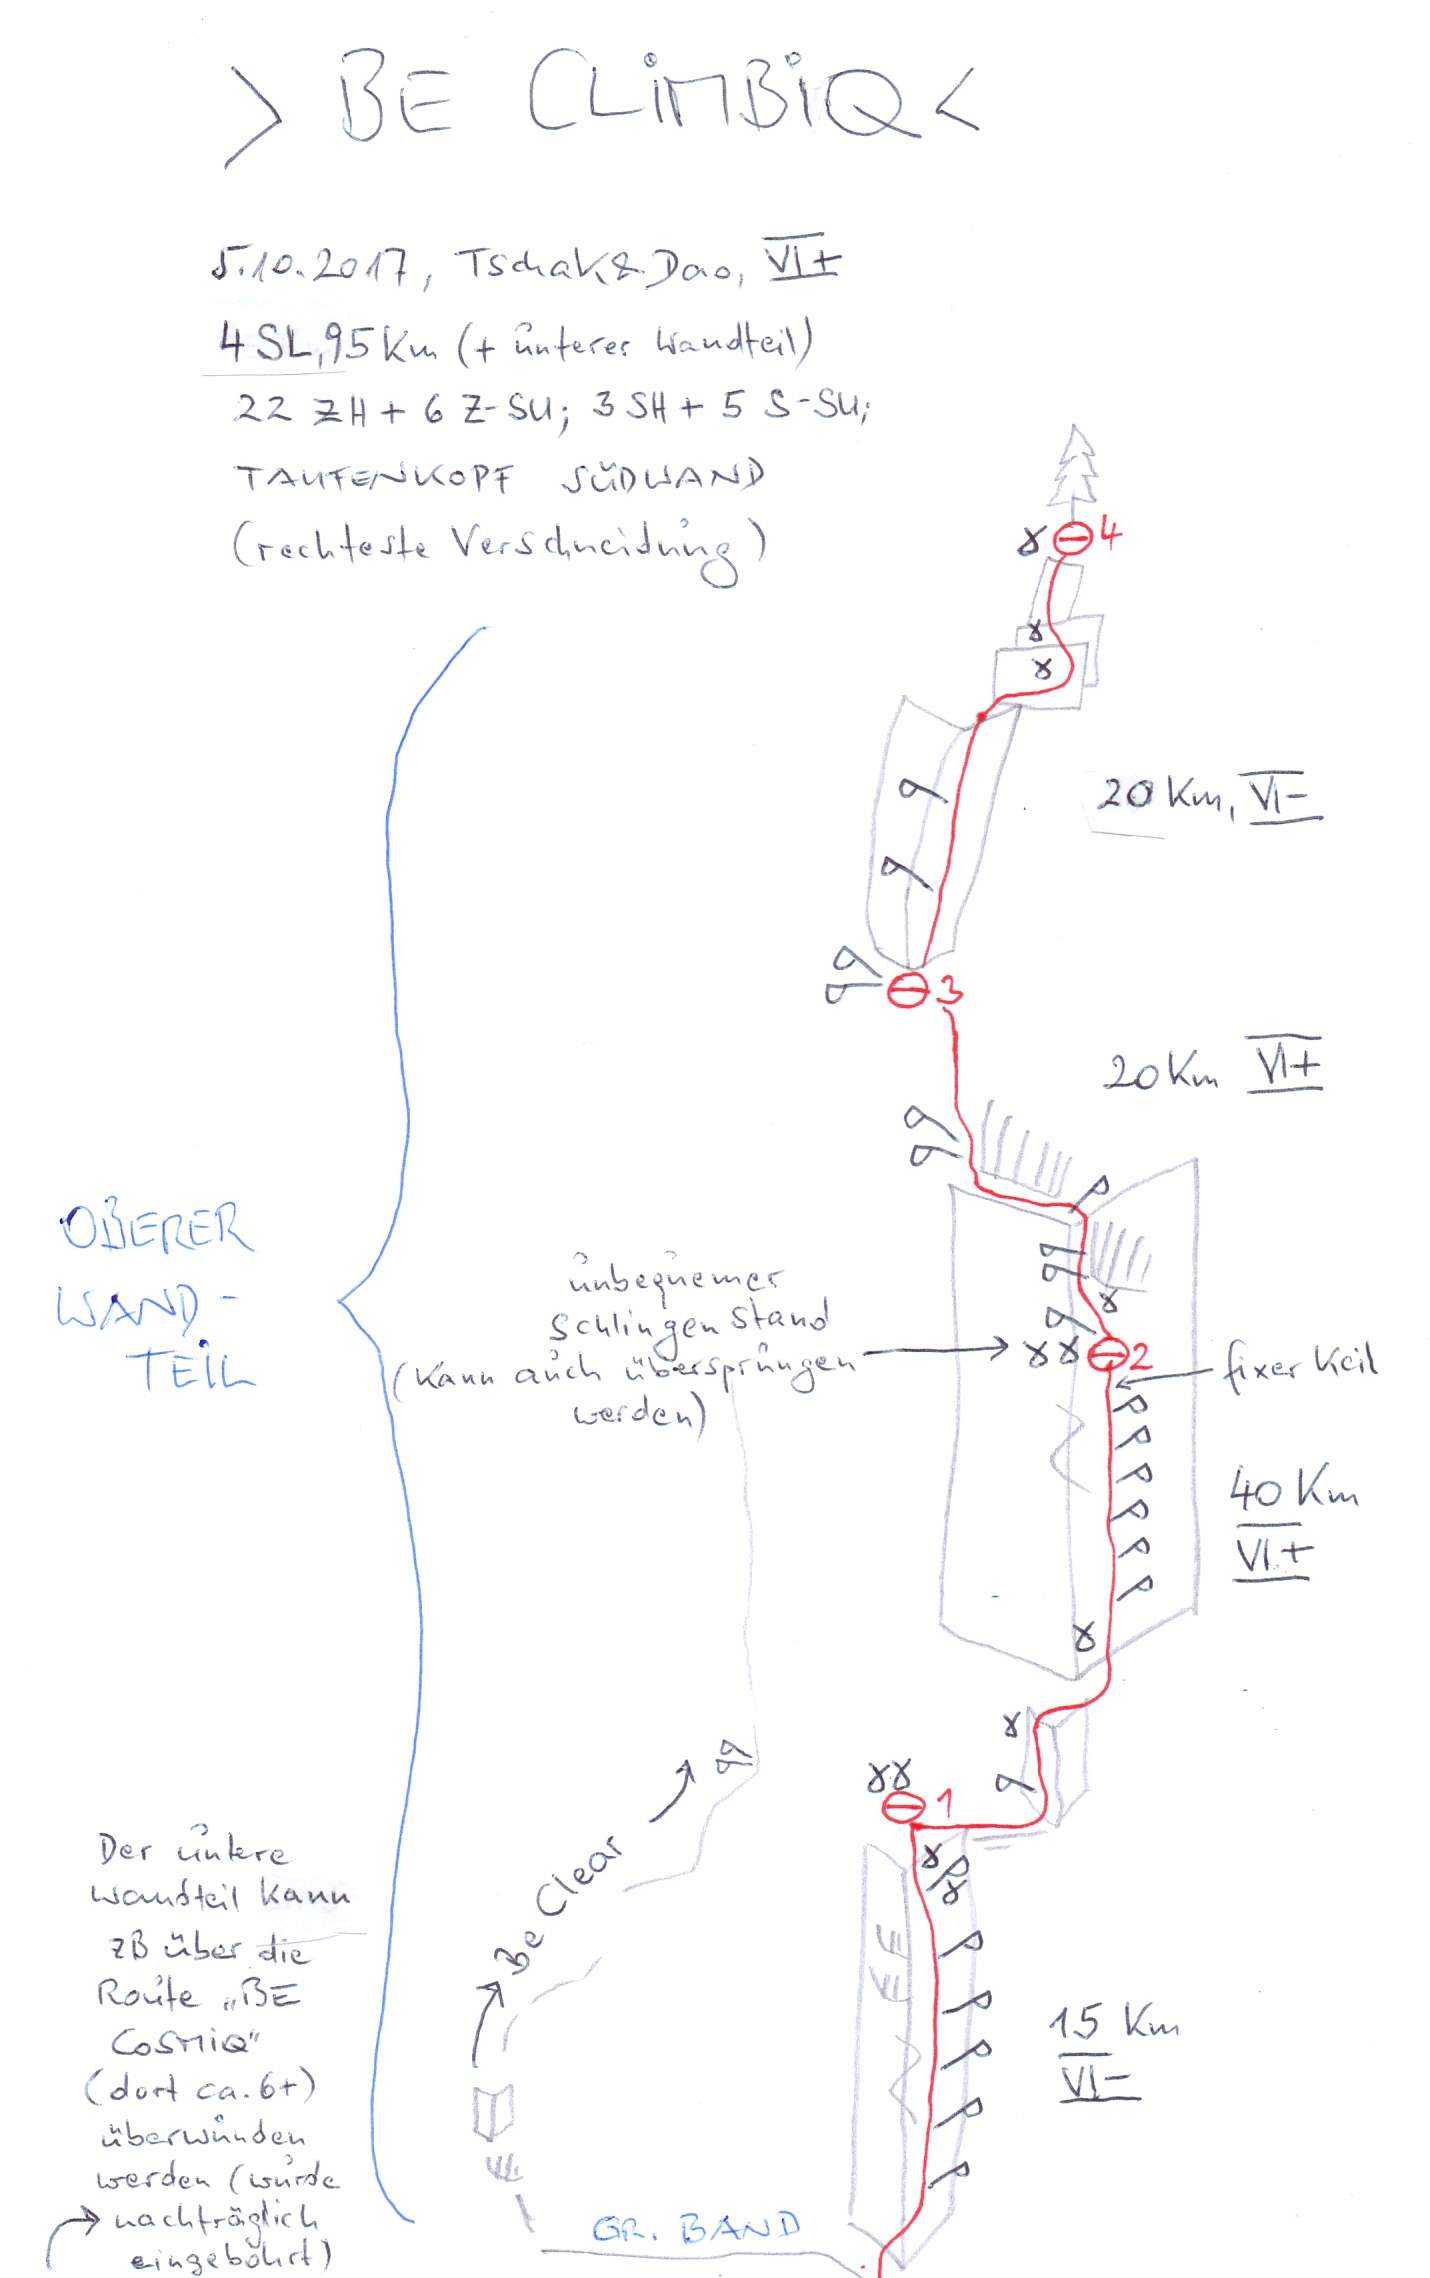 > BE CLiMBiQ <
5.10.2017, Tschak & Dao, VI+
4 SL, 95 Km (+ unterer Wandteil)
22 ZH + 6 Z-SU; 3 SH + 5 S-SU;
TAUFENKOPF SÜDWAND
(rechteste Verschneidung)
4
20 Km, VI-
3
20 Km VI+
OBERER
WAND-
TEIL
unbequemer
Schlingenstand
(Kann auch übersprungen
werden)
2
fixer Keil
40 Km
VI+
1
Be Clear
Der untere
Wandteil kann
zB über die
Route „BE
COSMiQ"
(dort ca. 6+)
überwunden
werden (wurde
nachträglich
eingebohrt)
15 Km
VI-
GR. BAND